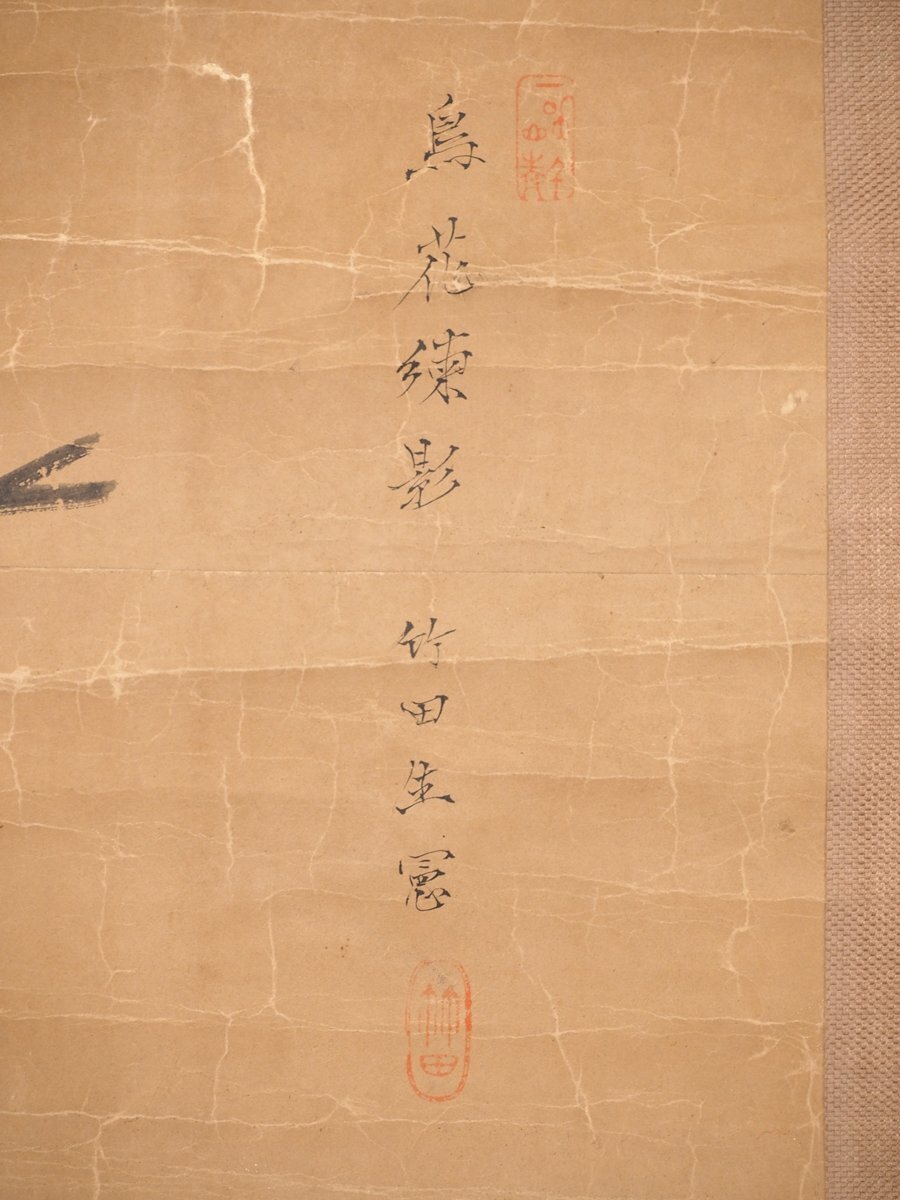 鳥花練影 竹田生憲
竹田